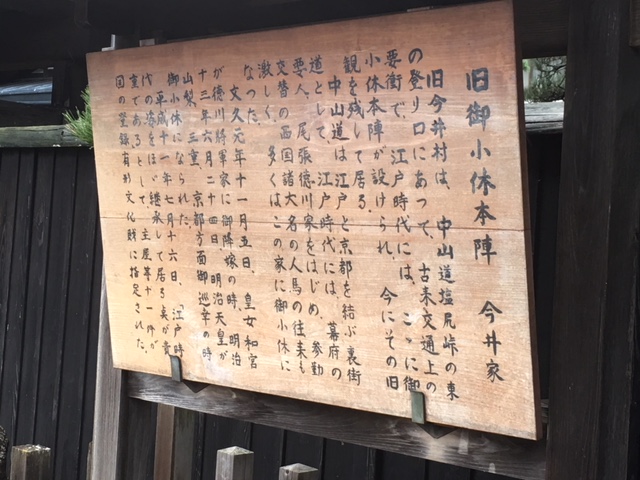 旧御小休本陣　今井家
旧今井村は、中山道塩尻峠の東
の登り口にあって、古来交通上の
要衝で、江戸時代には、こゝに御
小休本陣が設けられ、今にその旧
観を残して居る。
中山道は江戸と京都を結ぶ裏街
道として、江戸時代には、幕府の
要人、尾張徳川家をはじめ、参勤
交替の西国諸大名の人馬の往来も
激しく、多くはこの家に御小休に
なった。
文久元年十一月五日、皇女和宮
が徳川将軍家に御降嫁の時、明治
十三年六月二十四日、明治天皇が
山梨、三重、京都方面御巡幸の時
御小休になられた。
平成十一年七月十六日、江戸時
代の姿をほゞ継承して居る点が貴
重であるとして、主屋等十一件が
国の登録有形文化財に指定された。